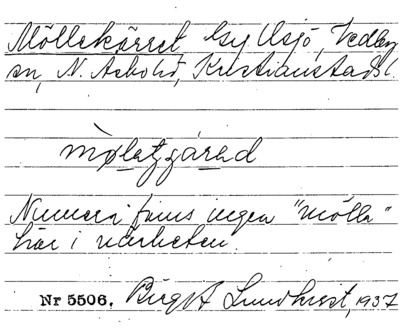 Möllekärret Gy Ilsjö, Vedby
sn, N. Åsbohd, Kristianstads l.
Numera finns ingen "mölla"
här i närheten.
Nr 5506. Birgit Lundkvist, 1937